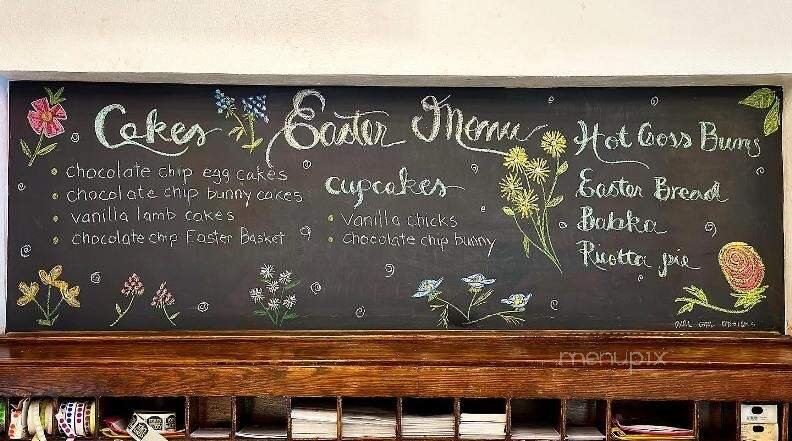 Easter Menu
Cakes
chocolate chip egg cakes
chocolate chip bunny cakes
vanilla lamb cakes
chocolate chip Easter Basket
cupcakes
Vanilla chicks
chocolate chip bunny
Hot Cross Buns
Easter Bread
Babka
Ricotta pie
menupix